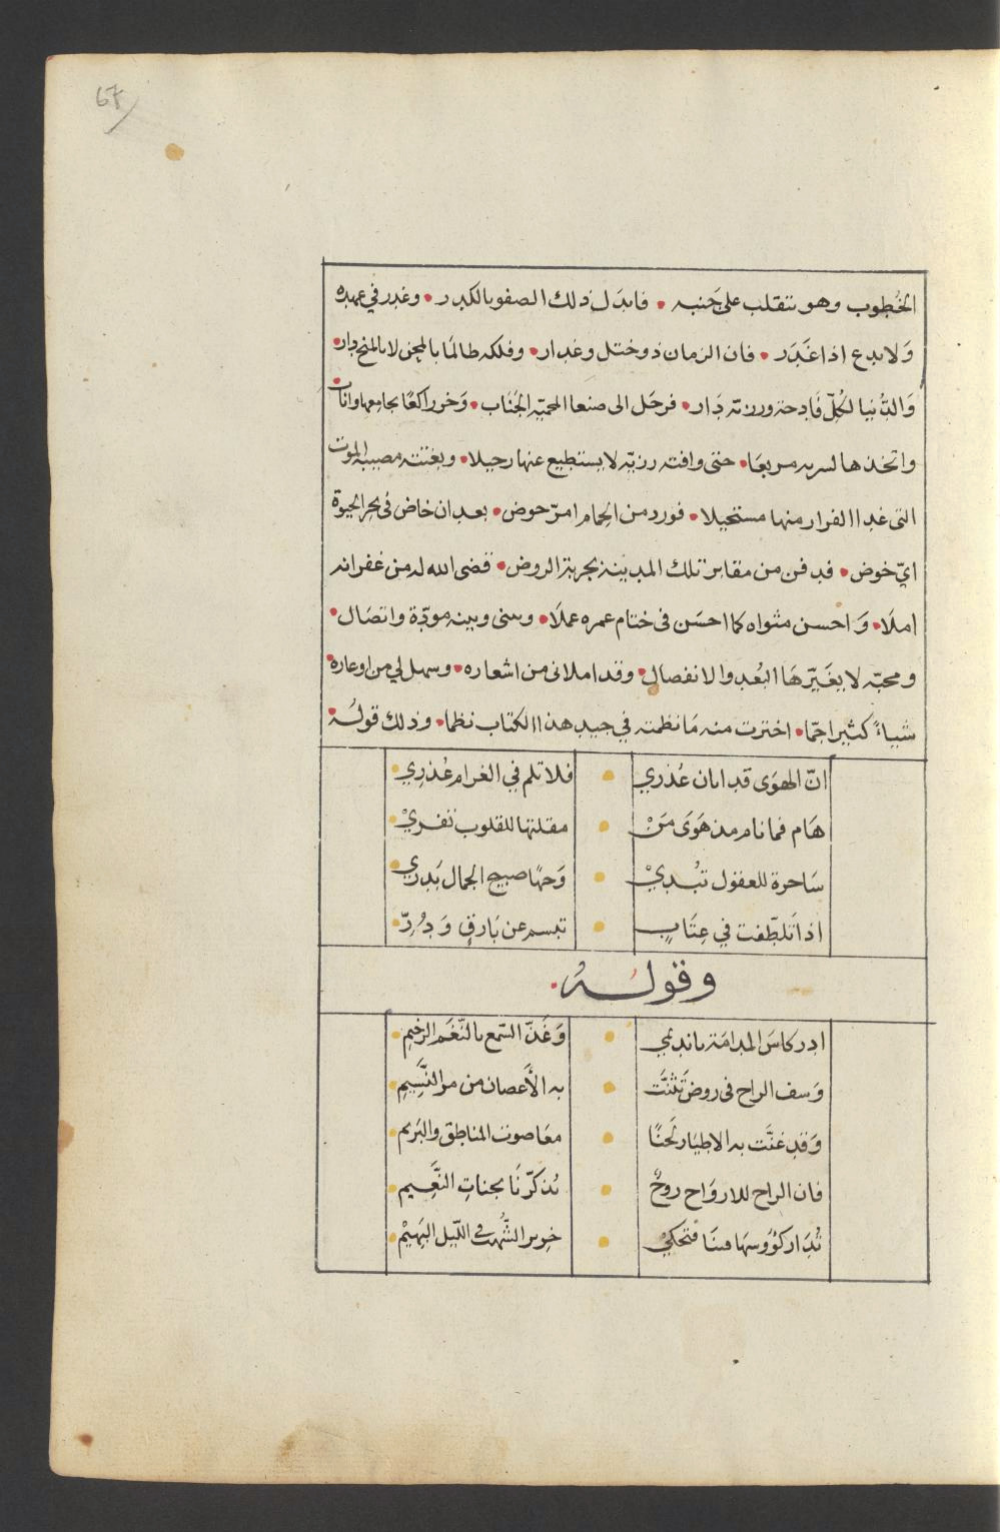 67
الخُطوب وهو يتقلب على جَنبه • فابدَل ذلك الصفو بالكدر • وغدر في عهده
وَلا بدع اذا غَدَر • فان الزمان ذو ختل وغدار • وفلكه طالمَا بالمحن لا بالمنح دار •
وَالدُّنيا لكُلّ فَادحة ورزية دَار • فرحَل الى صنعا المحميّه الجَناب • وَخر راكعًا بجامعها واناب •
واتخذها لسربه مربعَا • حتى وافته رزيّه لا يستطيع عنها رحيلا • وبغتته مصيبة الموت
التي غدا الفرار منها مستحيلا • فورد من الحِمام امرّ حوض • بعد ان خاض في بحر الحيوة
ايّ خوض • فدفن من مقابر تلك المدينة بجربة الروض • قضى الله له من غفرانه
املَا • وَاحسن مثواه كما احسَن في ختام عمره عملَا • وبيني وبينه مودّة واتصَال •
ومحبّه لا يغَيّرهَا البُعد والانفصال • وقد املاني من اشعاره • وسهل لي من اوعاره •
شياءً كثيرا جمّا • اخترت منه مَا نظمته في جيد هذا الكتاب نظما • وذلك قولُه •
انّ الهوَى قد ابان عُذري • فلا تلم في الغرام عُذرِي •
هَام فما نام مذ هَوَى مَنْ • مقلتها للقلوب تفريْ •
سَاحرة للعقول تبُديْ • وَجهًا صبيح الجمال بَدرِي •
اذا تَلطّفت في عِتَابٍ • تبسم عن بَارقٍ وَدُرِّ •
وقولــه •
ادر كاسَ المدامَة يا نديمي • وَغَذّ السّمع بالنَّغَم الرخيمِ •
وَسف الراح في روض تَثَنَّت • به الأَغصان من مر النَّسِيمِ •
وَقد غنَّت به الاطيَار لَحنًا • معَا صوت المناطق والبَريم •
فان الراح للارواح روحٌ • تذكّرنَا بجناتِ النَّعِيم •
تُدَار كؤوسهَا فينَا فتحكيْ • خوير الشُّهب في اللّيل البَهيْمْ •